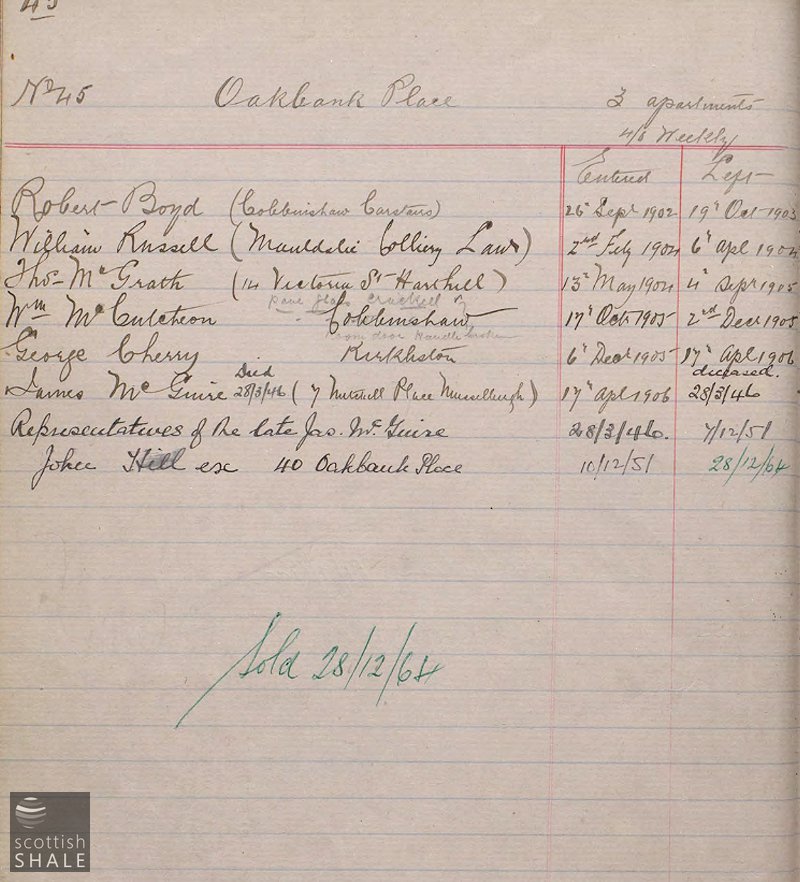 45
No 45 Oakbank Place 3 apartments
4/6 Weekly
Entered Left
Robert Boyd (Cobbinshaw Carstairs) 26th Sept 1902 19th Oct 1903
William Russell (Mauldslie Colliery Laws) 2nd Feby 1904 6th Apl 1904
Thos McGrath (14 Victoria St Harthill) 13th May 1904 4th Sept 1905
pane glass cracked
Wm McCutcheon Cobbinshaw 17th Oct 1905 2nd Decr 1905
room door Handle broken
George Cherry Kirkliston 6th Decr 1905 17th Apl 1906
Died deceased.
James McGuire 28/3/46 (7 Mitchell Place Musselburgh) 17th Apl 1906 28/3/46
Representatives of the late Jas. McGuire 28/3/46. 7/12/51
John Hill ex 40 Oakbank Place 10/12/51 28/12/64
Sold 28/12/64
scottish
SHALE